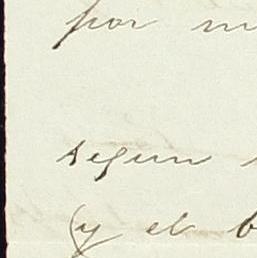 por
segun
(y el